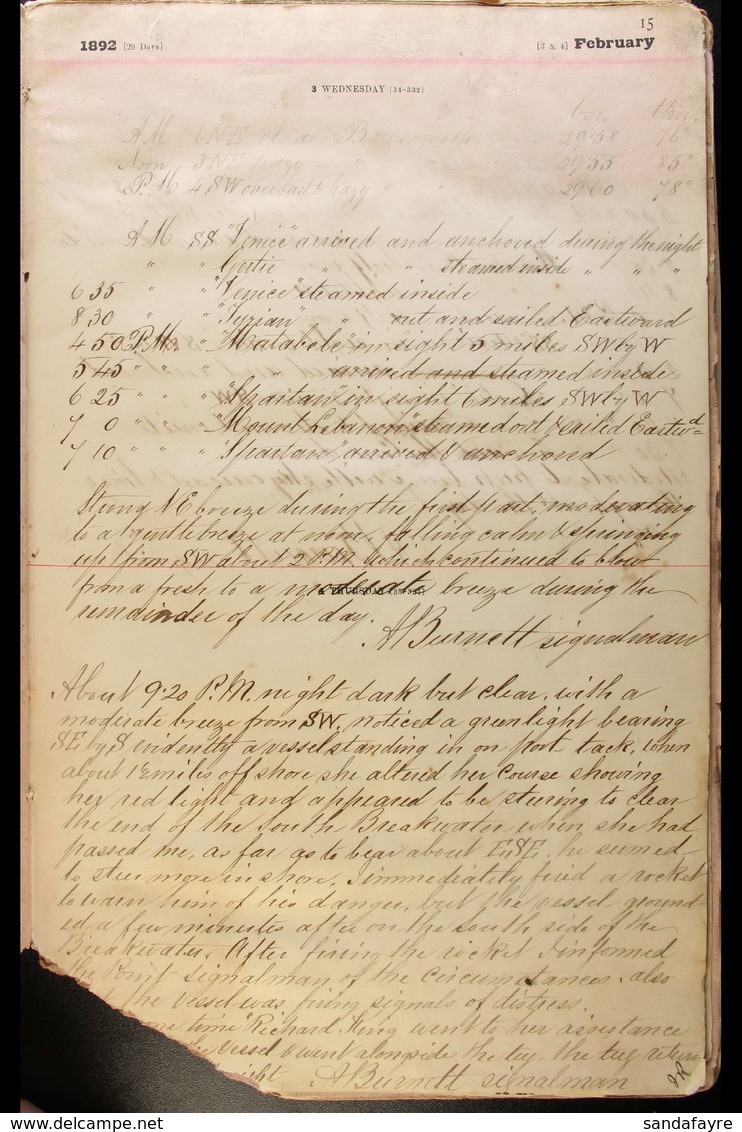 15
1892 [29 Days] [3 & 4] February
3 WEDNESDAY [34-332]
bar. ther.
A.M NE Bar smooth 29.58 76°
Noon NE hazy " " 29.55 85°
P.M 4 SW overcast & hazy " " 29.60 78°
A M SS "Venice" arrived and anchored during the night
" " Gertie " " steamed inside " " "
6 35 " " "Venice" steamed inside
8 30 " " "Tyrian" " out and sailed Eastward
4 50 P.M. " "Matabele" in sight 5 miles SW by W
5 45 " " " " arrived and steamed inside
6 25 " " "Spartan" in sight 6 miles SW by W
7 0 " " "Mount Lebanon" steamed out & sailed Eastwd
7 10 " " " "Spartan" arrived & anchored
Strong NE breeze during the first part, moderating
to a gentle breeze at noon, falling calm & springing
up from SW about 2 P.M. which continued to blow
from a fresh to a moderate breeze during the
4 THURSDAY [35-331]
remainder of the day.
A Burnett signalman
About 9.20 P.M. night dark but clear, with a
moderate breeze from SW. noticed a green light bearing
SE by S evidently a vessel standing in on port tack, when
about 1½ miles off shore she altered her course showing
her red light and appeared to be steering to clear
the end of the South Breakwater when she had
passed me, as far as to bear about ESE. he seemed
to steer more in shore, I immediately fired a rocket
to warn him of his danger, but the vessel ground-
ed a few minutes after on the south side of the
Breakwater. After firing the rocket I informed
the Point Signalman of the circumstances, also
the vessel was firing signals of distress.
time "Richard King" went to her assistance
the vessel & went alongside the tug, the tug return
A Burnett signalman
JR
sandafayre